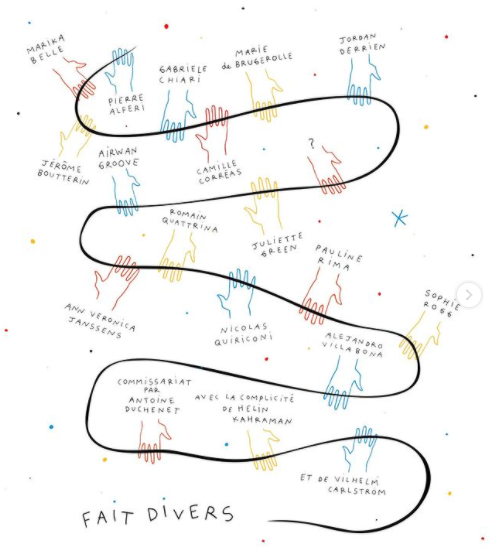 MARIKA
BELLE
PIERRE
ALFERI
GABRIELE
CHIARI
MARIE
de BRUGEROLLE
JORDAN
DERRIEN
JÉRÔME
BOUTTERIN
AIRWAN
GROOVE
CAMILLE
CORRÉAS
?
ROMAIN
QUATTRINA
JULIETTE
GREEN
PAULINE
RIMA
ANN VERONICA
JANSSENS
NICOLAS
QUIRICONI
ALEJANDRO
VILLABONA
SOPHIE
ROGG
COMMISSARIAT
PAR
ANTOINE
DUCHENET
AVEC LA COMPLICITÉ
DE HELIN
KAHRAMAN
ET DE VILHELM
CARLSTROM
FAIT DIVERS